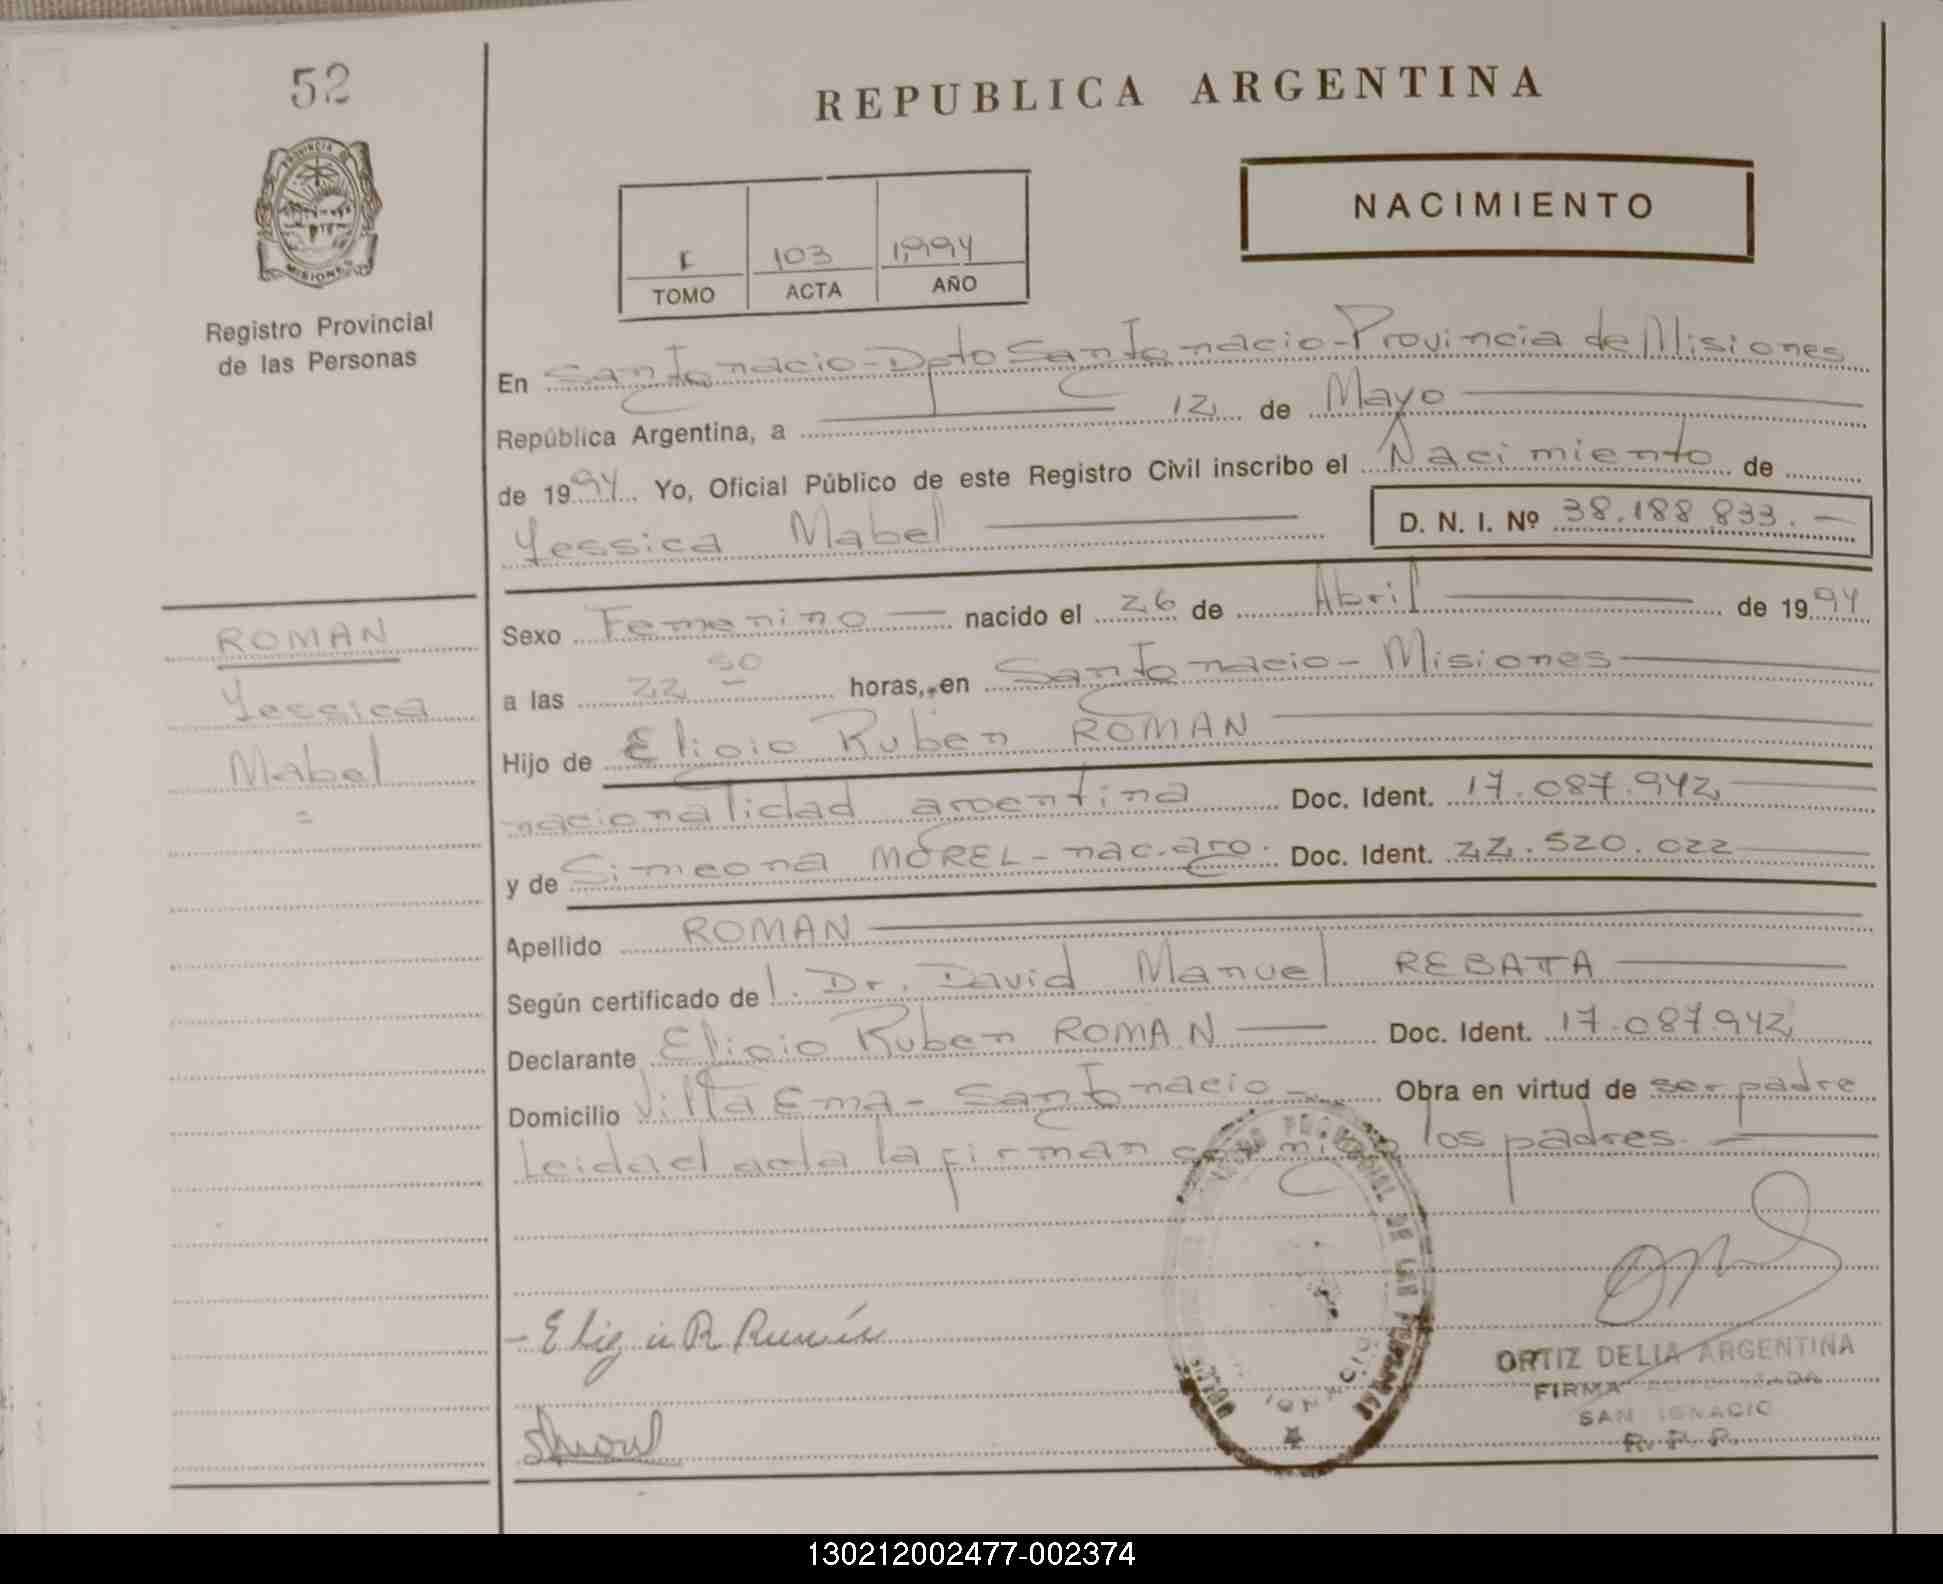 52
REPUBLICA ARGENTINA
PROVINCIA DE
MISIONES
Registro Provincial
de las Personas
I 103 1,994
TOMO ACTA AÑO
NACIMIENTO
En San Ignacio - Dpto San Ignacio - Provincia de Misiones
República Argentina, a 12 de Mayo
de 1994 Yo, Oficial Público de este Registro Civil inscribo el Nacimiento de
Yessica Mabel D. N. I. Nº 38.188.833.-
Sexo Femenino nacido el 26 de Abril de 1994
a las 22 50 horas, en San Ignacio - Misiones
Hijo de Eligio Ruben ROMAN
nacionalidad argentina Doc. Ident. 17.087.942
y de Simeona MOREL - nac. arg. Doc. Ident. 22.520.022
Apellido ROMAN
Según certificado de l. Dr. David Manuel REBATTA
Declarante Eligio Ruben ROMAN Doc. Ident. 17.087.942
Domicilio Villa Ema - San Ignacio - Obra en virtud de ser padre
Leida el acta la firman conmigo los padres.
ROMAN
Yessica
Mabel
=
PROVINCIAL DE LAS PERSONAS
IGNACIO
ORTIZ DELIA ARGENTINA
FIRMA AUTORIZADA
SAN IGNACIO
R. P. P.
130212002477-002374